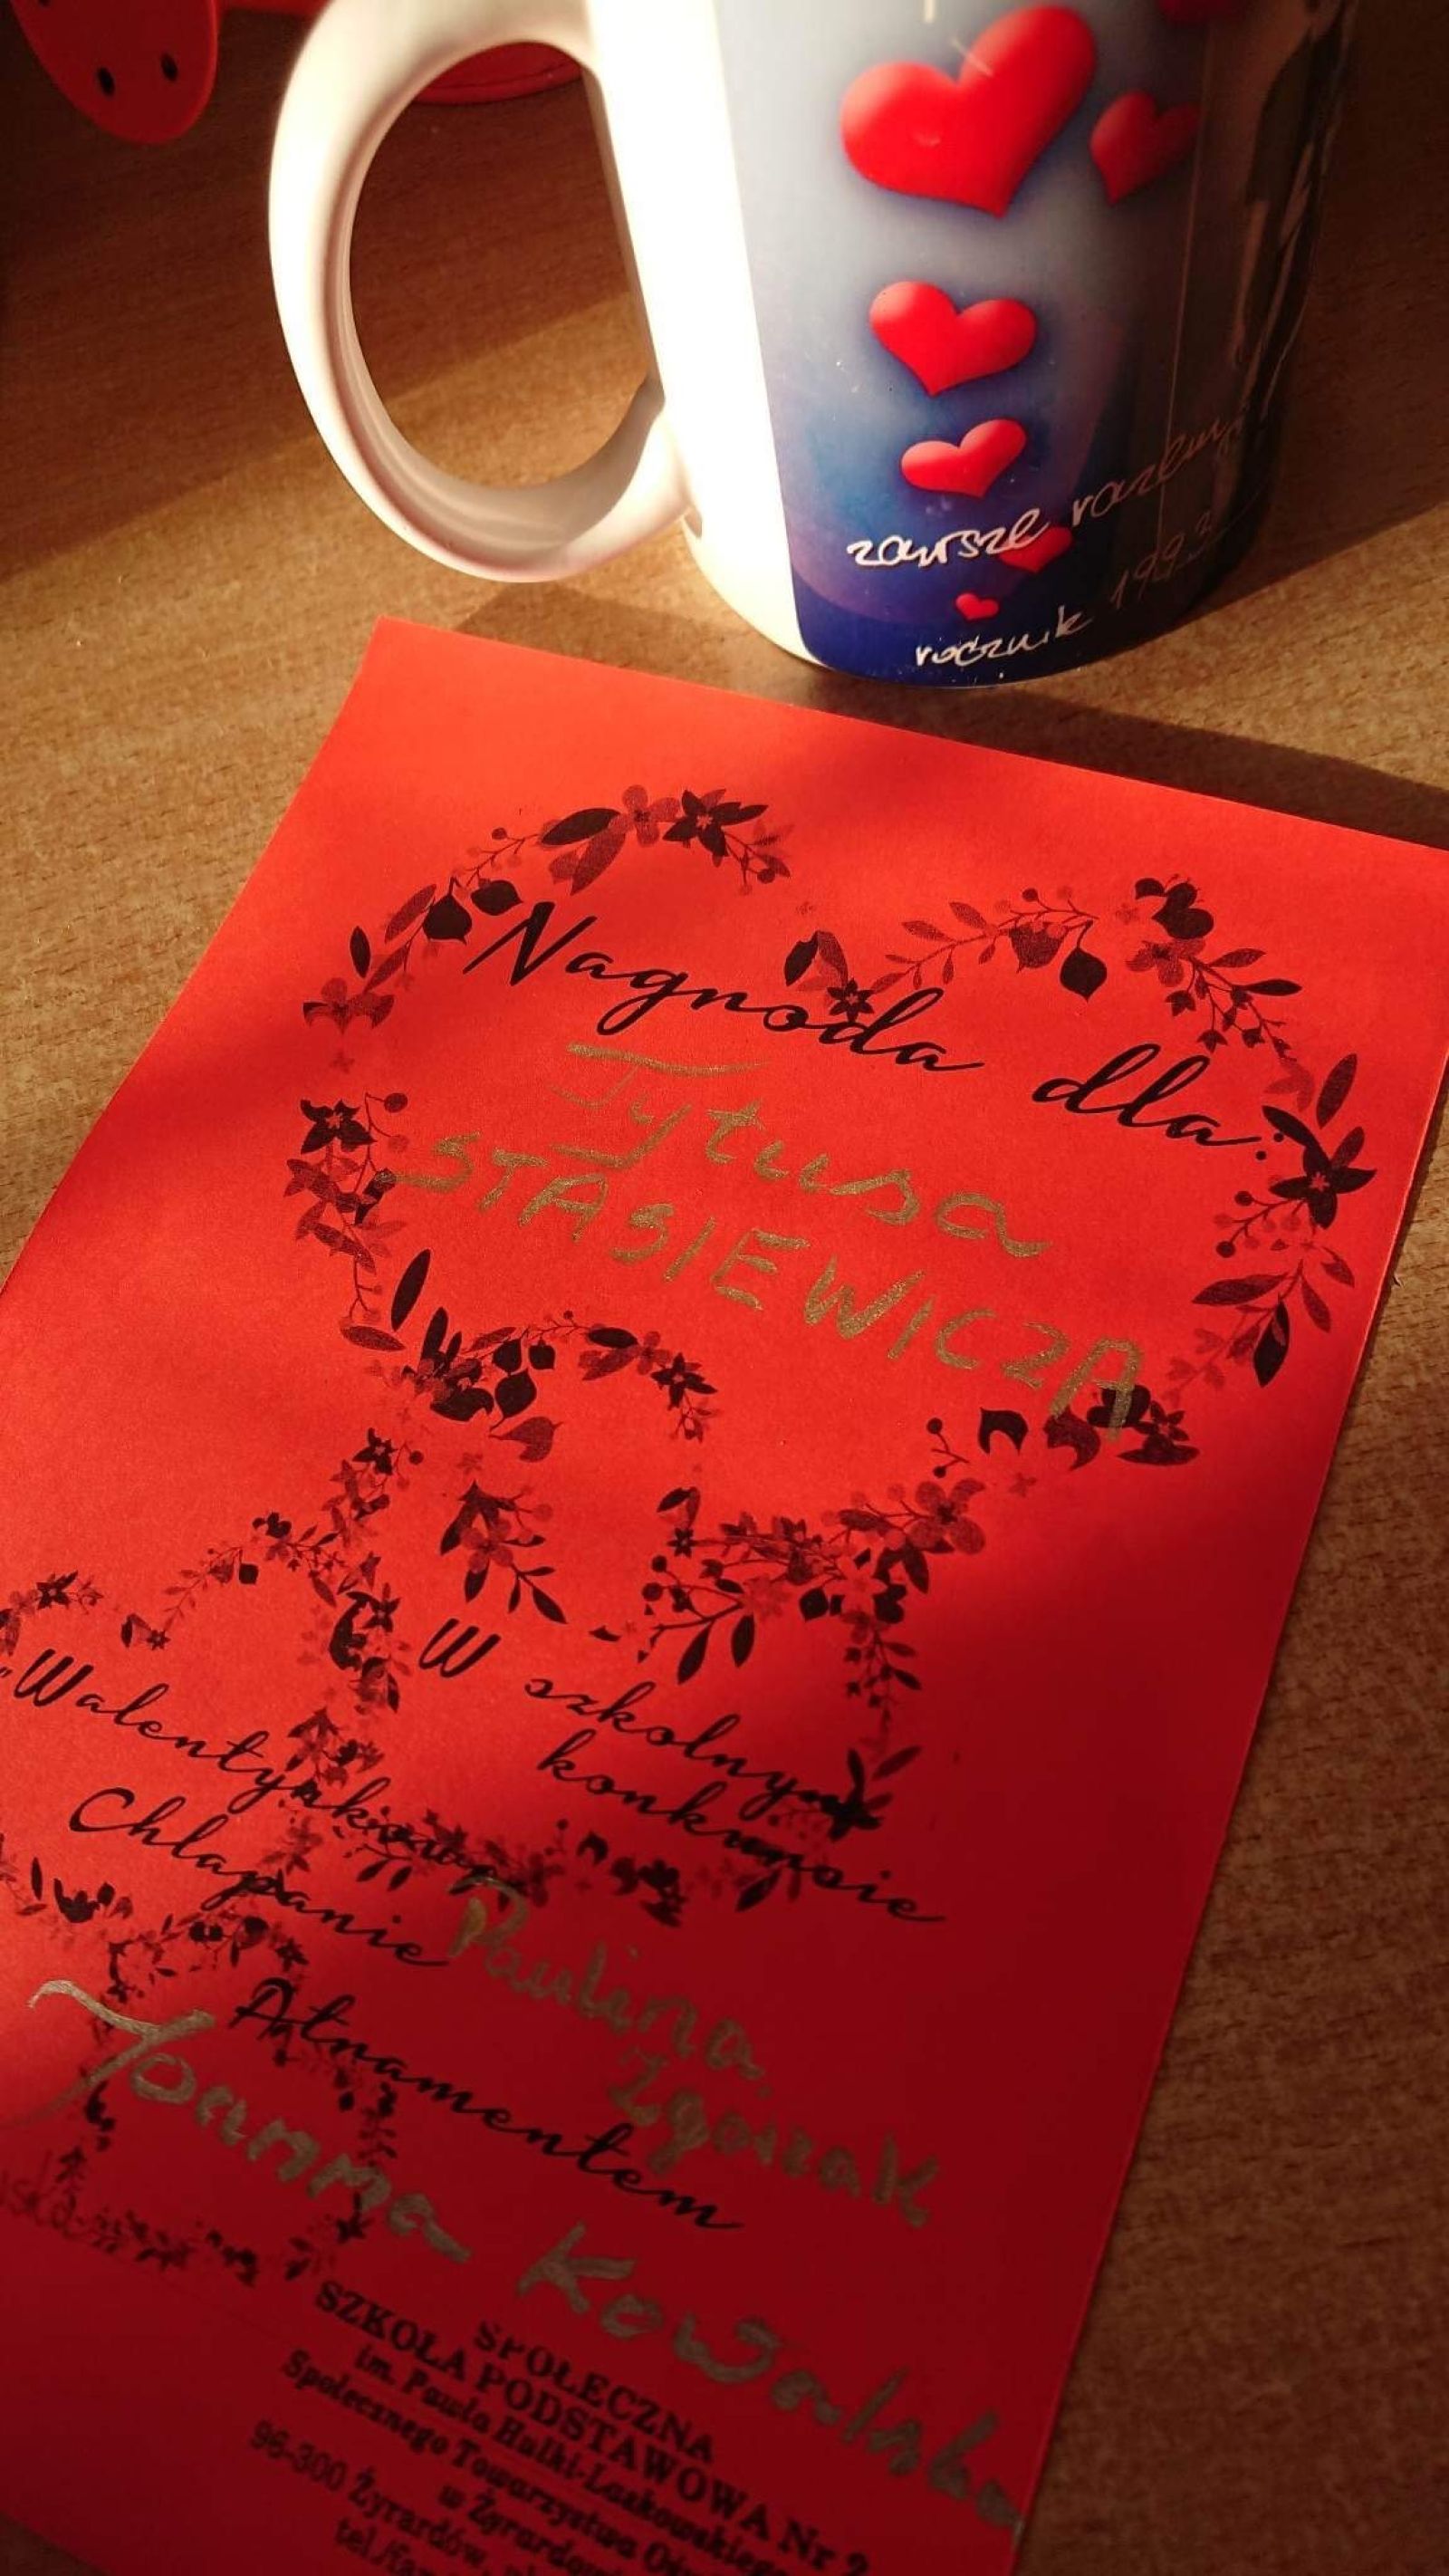 zawsze razem
rocznik 1993
Nagroda dla:
Tytusa
STASIEWICZA
W szkolnym
konkursie
"Walentynkowe
Chlapanie
Atramentem
Paulina
Zgorzak
Joanna Kowalska
SPOŁECZNA
SZKOŁA PODSTAWOWA Nr 2
im. Pawła Hulki-Laskowskiego
Społecznego Towarzystwa
w Żyrardowie
96-300 Żyrardów,
tel./fax